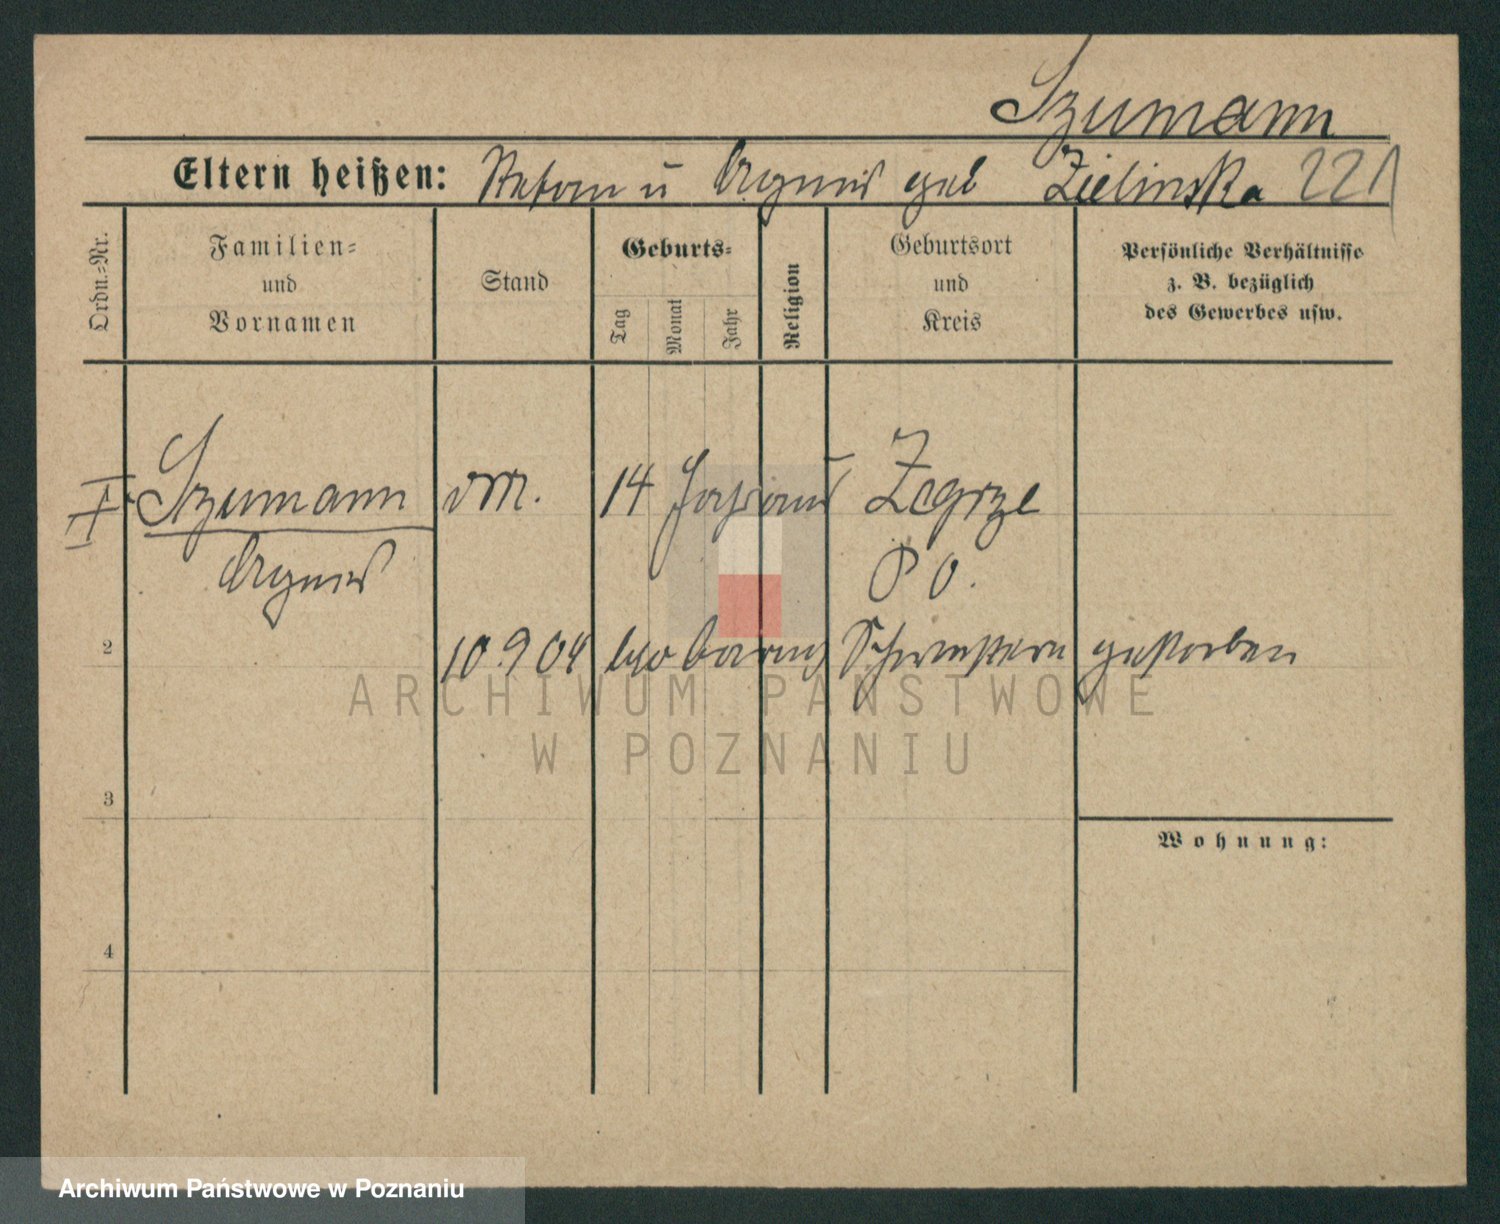 Szumann
Eltern heißen: Stefan u Agnes geb Zielinska 221
Ordn.-Nr.
Familien-
und
Vornamen
Stand
Geburts-
Tag
Monat
Jahr
Religion
Geburtsort
und
Kreis
Persönliche Verhältnisse
z. B. bezüglich
des Gewerbes usw.
Szumann 14 Zegrze
Agnes P O.
2
10.9 04 gestorben
ARCHIWUM PAŃSTWOWE
W POZNANIU
3
Wohnung:
4
Archiwum Państwowe w Poznaniu